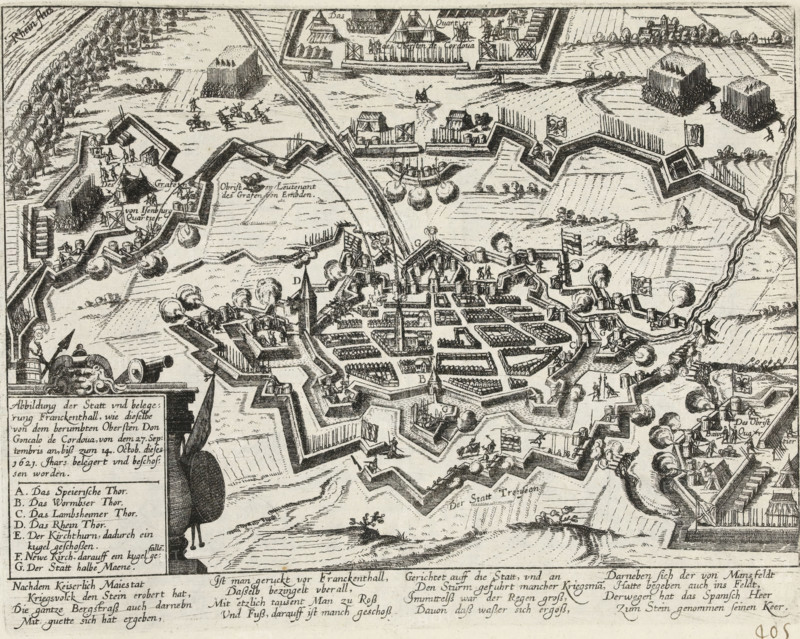 Rhein flus
Das Quartier
des Herren de Cordoua
Der Grafe
von Isenburg
Quartier
Obrist Leutenant
des Grafen von Embden.
Das Obrist
Quar
tier
Der Statt
A
B
C
D
E
F
G
Abbildung der Statt vnd belege:
rung Franckenthall, wie dieselbe
von dem berumbten Obersten Don
Gonealo de Cordoua, von dem 27. Sep
tembris an, biß zum 14. Octob. dieses
1621. Jhars belegert vnd beschos:
sen worden.
A. Das Speierische Thor.
B. Das Wormbser Thor.
C. Das Lambsheimer Thor.
D. Das Rhein Thor.
E. Der Kirchthurn, dadurch ein
kugel geschoßen.
F. Newe Kirch, darauff ein kugel ge:
falle.
G. Der Statt halbe Maene.
Nachdem Keiserlich Maiestat
Kriegsvolck den Stein erobert hat,
Die gantze Bergstraß auch darnebn
Mit guette sich hat ergeben,
Ist man geruckt vor Franckenthall,
Daßelb bezingelt vberall,
Mit etzlich tausent Man zu Roß
Vnd Fuß, darauff ist manch geschoß
Gerichtet auff die Statt, vnd an
Den Sturm gefuhrt mancher Kriegsmã,
Immittelst war der Regen groß,
Dauon daß waßer sich ergoß,
Darneben sich der von Mansfeldt
Hatte begeben auch ins Feldt,
Derwegen hat das Spanisch Heer
Zum Stein genommen seinen Keer.